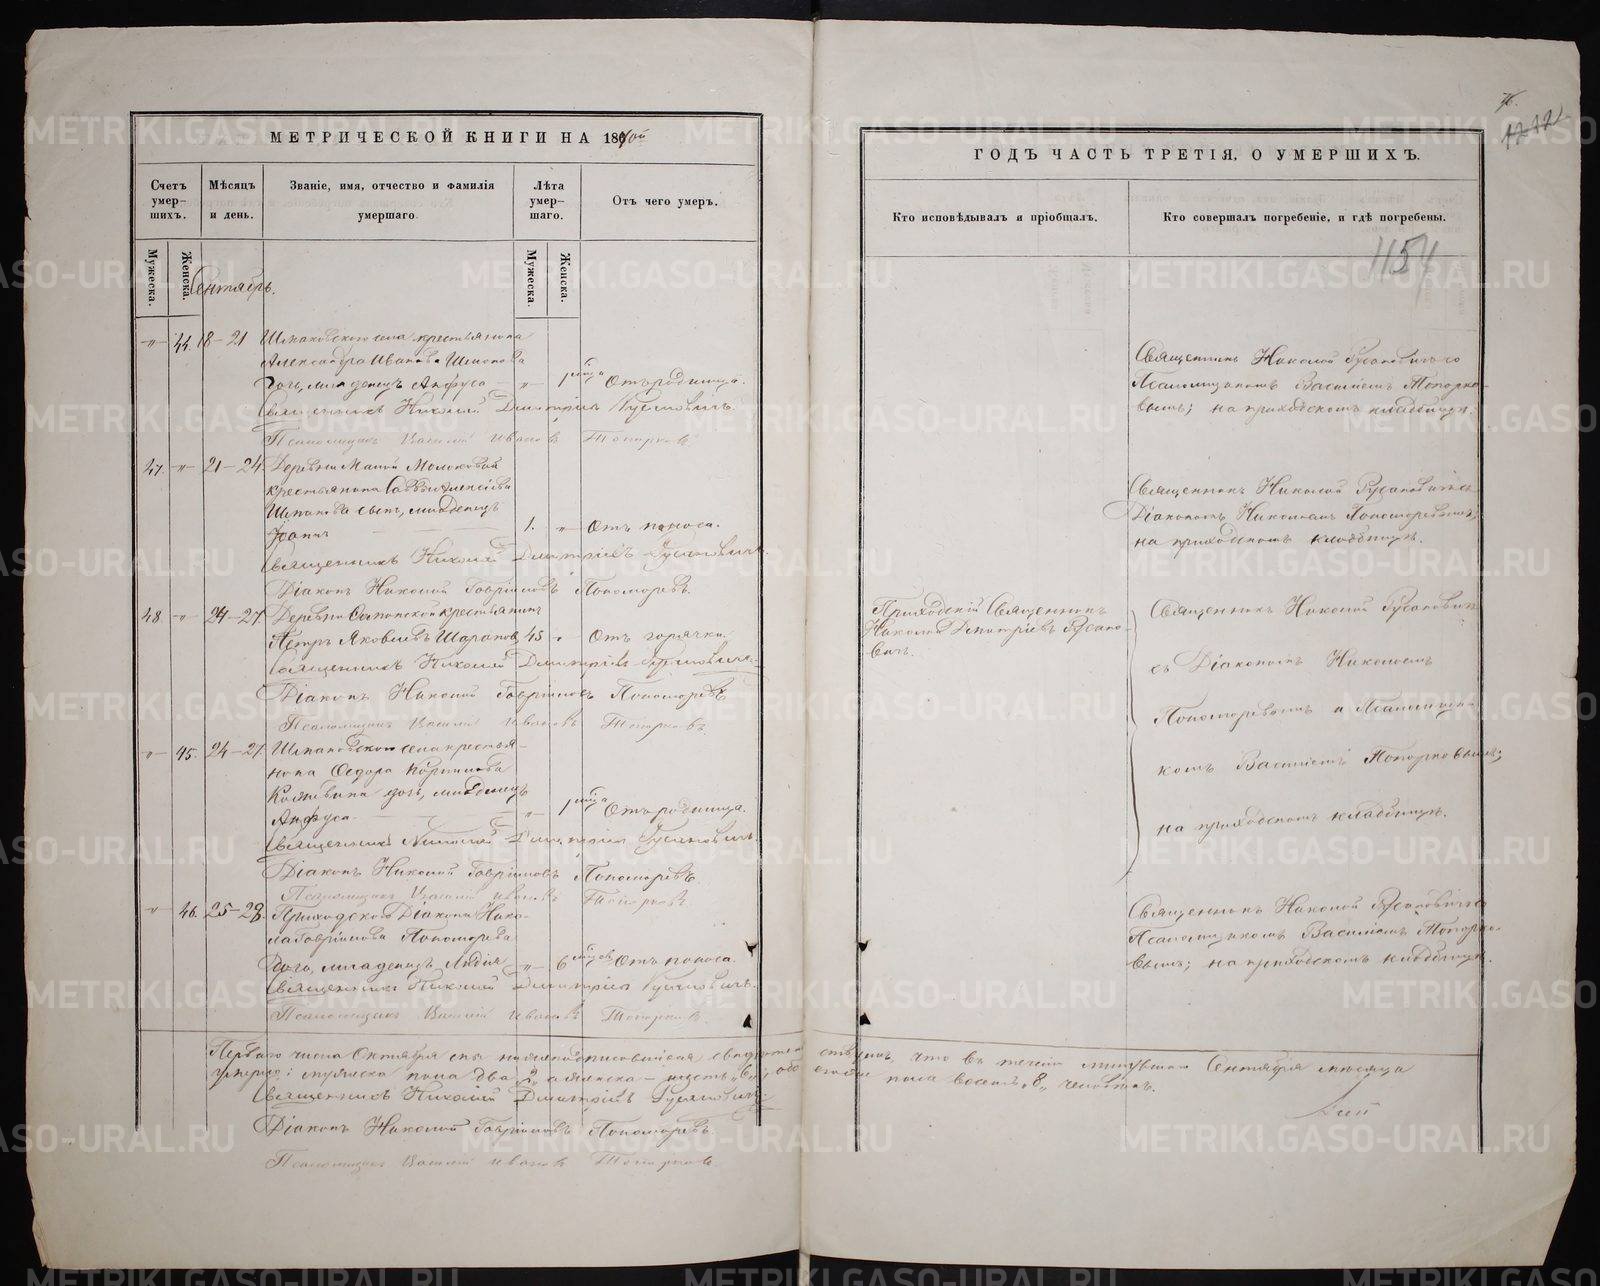 МЕТРИЧЕСКОЙ КНИГИ НА 186
Счетъ умер-шихъ.
Мѣсяцъ и день.
Званіе, имя, отчество и фамилія умершаго.
Лѣта умер-шаго.
Отъ чего умеръ.
Мужеска.
Женска.
Мужеска.
Женска.
Сентябрь.
" 44. 18-21 Шпаковскаго села крестьянина
Александра Иванова
дочь, младенецъ Анфуса — " — Отъ родимца.
Священникъ Николай Димитріевъ Русановичъ.
Псаломщикъ Василій Ивановъ Топорковъ
47. " 21-24. Деревни Малой Молоковой
крестьянина Саввы Алексіева
Шпакова сынъ, младенецъ
Іоаннъ 1. " Отъ поноса.
Священникъ Николай Димитріевъ Русановичъ.
Діаконъ Николай Гавріиловъ Пономаревъ.
48. " 24-27. Деревни крестьянинъ
Петръ Яковлевъ Шараповъ 45 " Отъ горячки.
Священникъ Николай Димитріевъ Русановичъ.
Діаконъ Николай Гавріиловъ Пономаревъ
Псаломщикъ Василій Ивановъ Топорковъ
" 45. 24-27. Шпаковскаго села крестья-
нина Ѳедора
дочь, младенецъ
Анфуса — " — Отъ родимца.
Священникъ Николай Димитріевъ Русановичъ.
Діаконъ Николай Гавріиловъ Пономаревъ.
Псаломщикъ Василій Ивановъ Топорковъ.
" 46. 25-28. Приходскаго Діакона Нико-
лая Гавріилова Пономарева
дочь, младенецъ Лидія — " — 6 мѣсяцев Отъ поноса.
Священникъ Николай Димитріевъ Русановичъ.
Псаломщикъ Василій Ивановъ Топорковъ.
Перваго числа Октября мы нижеподписавшіеся свидѣтельствуемъ, что въ теченіи минувшаго Сентября мѣсяца
умерло: мужеска пола два "2", а женска — шесть "6", обо пола восемь "8" человѣкъ.
Священникъ Николай Димитріевъ Русановичъ.
Діаконъ Николай Гавріиловъ Пономаревъ.
Псаломщикъ Василій Ивановъ Топорковъ.
ГОДЪ ЧАСТЬ ТРЕТІЯ, О УМЕРШИХЪ.
Кто исповѣдывалъ и пріобщалъ.
Кто совершалъ погребеніе, и гдѣ погребены.
1154
Священникъ Николай Русановичъ со
Псаломщикомъ Василіемъ Топорко-
вымъ; на приходскомъ кладбищѣ.
Священникъ Николай Русановичъ съ
Діакономъ Николаемъ Пономаревымъ,
на приходскомъ кладбищѣ.
Приходскій Священникъ
Николай Димитріевъ Русано-
вичъ.
Священникъ Николай Русановичъ
съ Діакономъ Николаемъ
Пономаревымъ и Псаломщи-
комъ Василіемъ Топорковымъ;
на приходскомъ кладбищѣ.
Священникъ Николай Русановичъ съ
Псаломщикомъ Василіемъ Топорко-
вымъ; на приходскомъ кладбищѣ.
METRIKI.GASO-URAL.RU